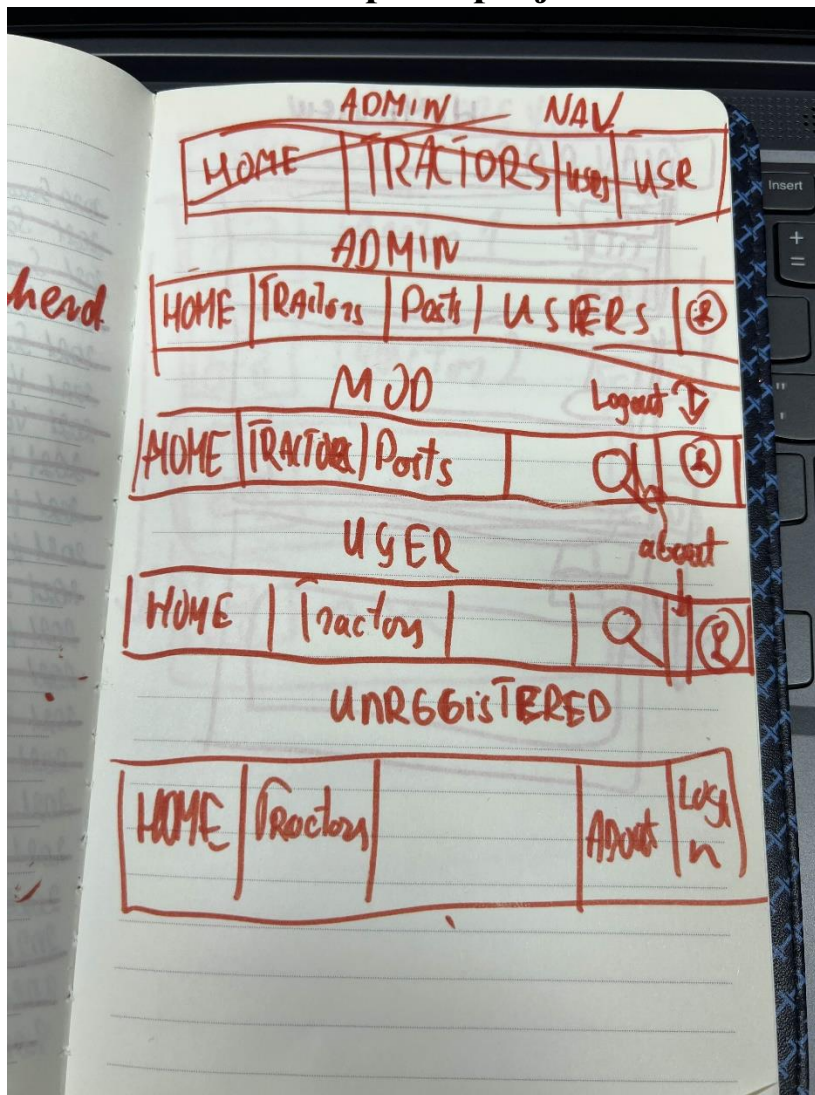 ADMIN NAV
HOME TRACTORS USERS USR
ADMIN
herd
HOME TRActors Posts USERS
MOD
Logout
HOME TRACTORS Posts
USER
about
HOME Tractors
UNREGGISTERED
HOME Tractors About Log
n
Insert
+
=
"
'